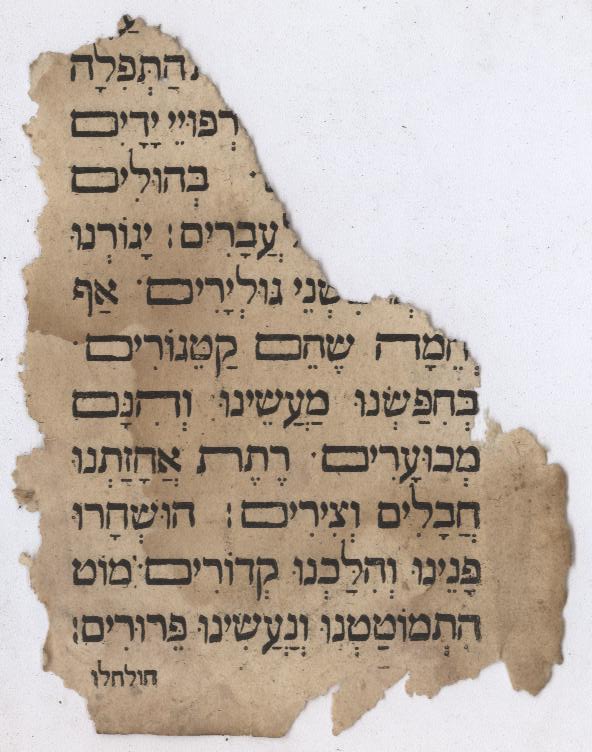 הַתְּפִלָּה
רְפוּיֵי יָדַיִם
בְּהוּלִים
לַעֲבָרִים: יְגוֹרְנוּ
שְׁנֵי גּוּלְיָרִים · אַף
וְחֵמָה שֶׁהֵם קַטֵּגוֹרִים ·
בְּחִפַּשְׂנוּ מַעֲשֵׂינוּ וְהִנָּם
מְכוֹעָרִים · רֶתֶת אֲחָזַתְנוּ
חֲבָלִים וְצִירִים: הוּשְׁחֲרוּ
פָּנֵינוּ וְהִלַּכְנוּ קְדוֹרִים · מוֹט
הִתְמוֹטַטְנוּ וְנַעֲשִׂינוּ פֵּרוּרִים:
חולחלו